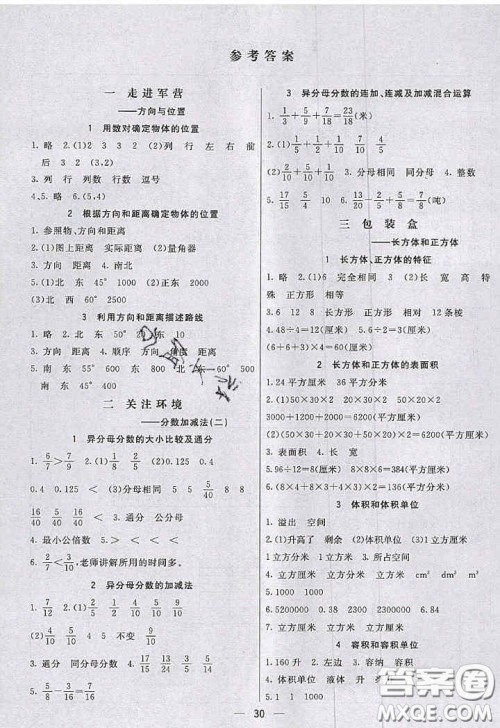 参考答案
一 走进军营
——方向与位置
1 用数对确定物体的位置
1. 略 2.(1)2 3 3 2 (2)列 行 左 右 前
后 3 2 (3,2)
3. 列 行 列数 行数 逗号
4.5. 略 6.(5,4)
2 根据方向和距离确定物体的位置
1. 参照物、方向和距离
2.(1)图上距离 实际距离 (2)量角器
3. 方向 距离 4. 南北
5.(1)北 东 45° 1000 (2)正东 2000
(3)北 西 60° 1000
3 利用方向和距离描述路线
1. 略 2. 北 东 50° 20 东 10
3. 方向 距离 4. 顺序 方向 角度 距离
5. 南 东 45° 80 东 60 北 东 60° 80
南 东 45° 80
二 关注环境
——分数加减法(二)
1 异分母分数的大小比较及通分
1. 2/7 > 3/9 2.(1) 1/8 1/5 (2)0.125 0.4
0.125 0.4 < < (3)分母相同 5 5 8
16/40 5/40 > > 通分 公分母
4. 最小公倍数 5. < > < <
6. 2/7 < 3/10, 老师讲解所用的时间多。
2 异分母分数的加减法
1. 7/12 2.(1) 1/2 2/5 5/10 4/10 1/10
(2) 1/2 2/5 4 5 不变 9/10
3. 通分 同分母分数 4. 17/15 13/24 9/10 9/20
3 异分母分数的连加、连减及加减混合运算
1. 1/3 + 5/9 + 7/18 = 23/18 (米)
2.(1) 2/10 + 1/10 (2) 3/10 3. 分母相同 同分母 4. 整数
5. 17/15 5/24 10 6. 13/20 - 2/5 + 5/8 = 7/8 (吨)
三 包装盒
——长方体和正方体
1 长方体、正方体的特征
1. 略 2.(1)6 完全相同 (2)长 宽 高 特
殊 正方形 相等
3. 6 12 8 长方形 正方形 相对 12条棱
4.48÷4=12(厘米) 5.48÷12=4(厘米)
6.(6+5+3)×4=56(厘米)
2 长方体和正方体的表面积
1.24 平方厘米 36 平方厘米
2.(1)(50×30×2 20×50×2 30×20×2
3000+1200+2000=6200(平方厘米)
(2)(50×30+50×20+30×20)×2
=6200(平方厘米)
3. 略 4. 长 宽
5.96÷12=8(厘米) 8×8×6=384(平方厘米)
6.(8×6+8×4+6×4)×2=208(平方厘米)
3 体积和体积单位
1. 溢出 空间
2.(1)升高了 剩余 (2)体积 体积
3.1立方厘米 1立方米
4. 立方厘米 立方分米 立方米 cm³ dm³
m³
5.1000 1000
6.5200000 0.84 5200000 6.84
7. 立方厘米 立方分米 立方米
4 容积和容积单位
1.160 升 2. 左边 3. 容纳 容积
4. 容器 液体 升 毫升 L mL
5.1 1 1000
30
答案圈
MXQE.COM